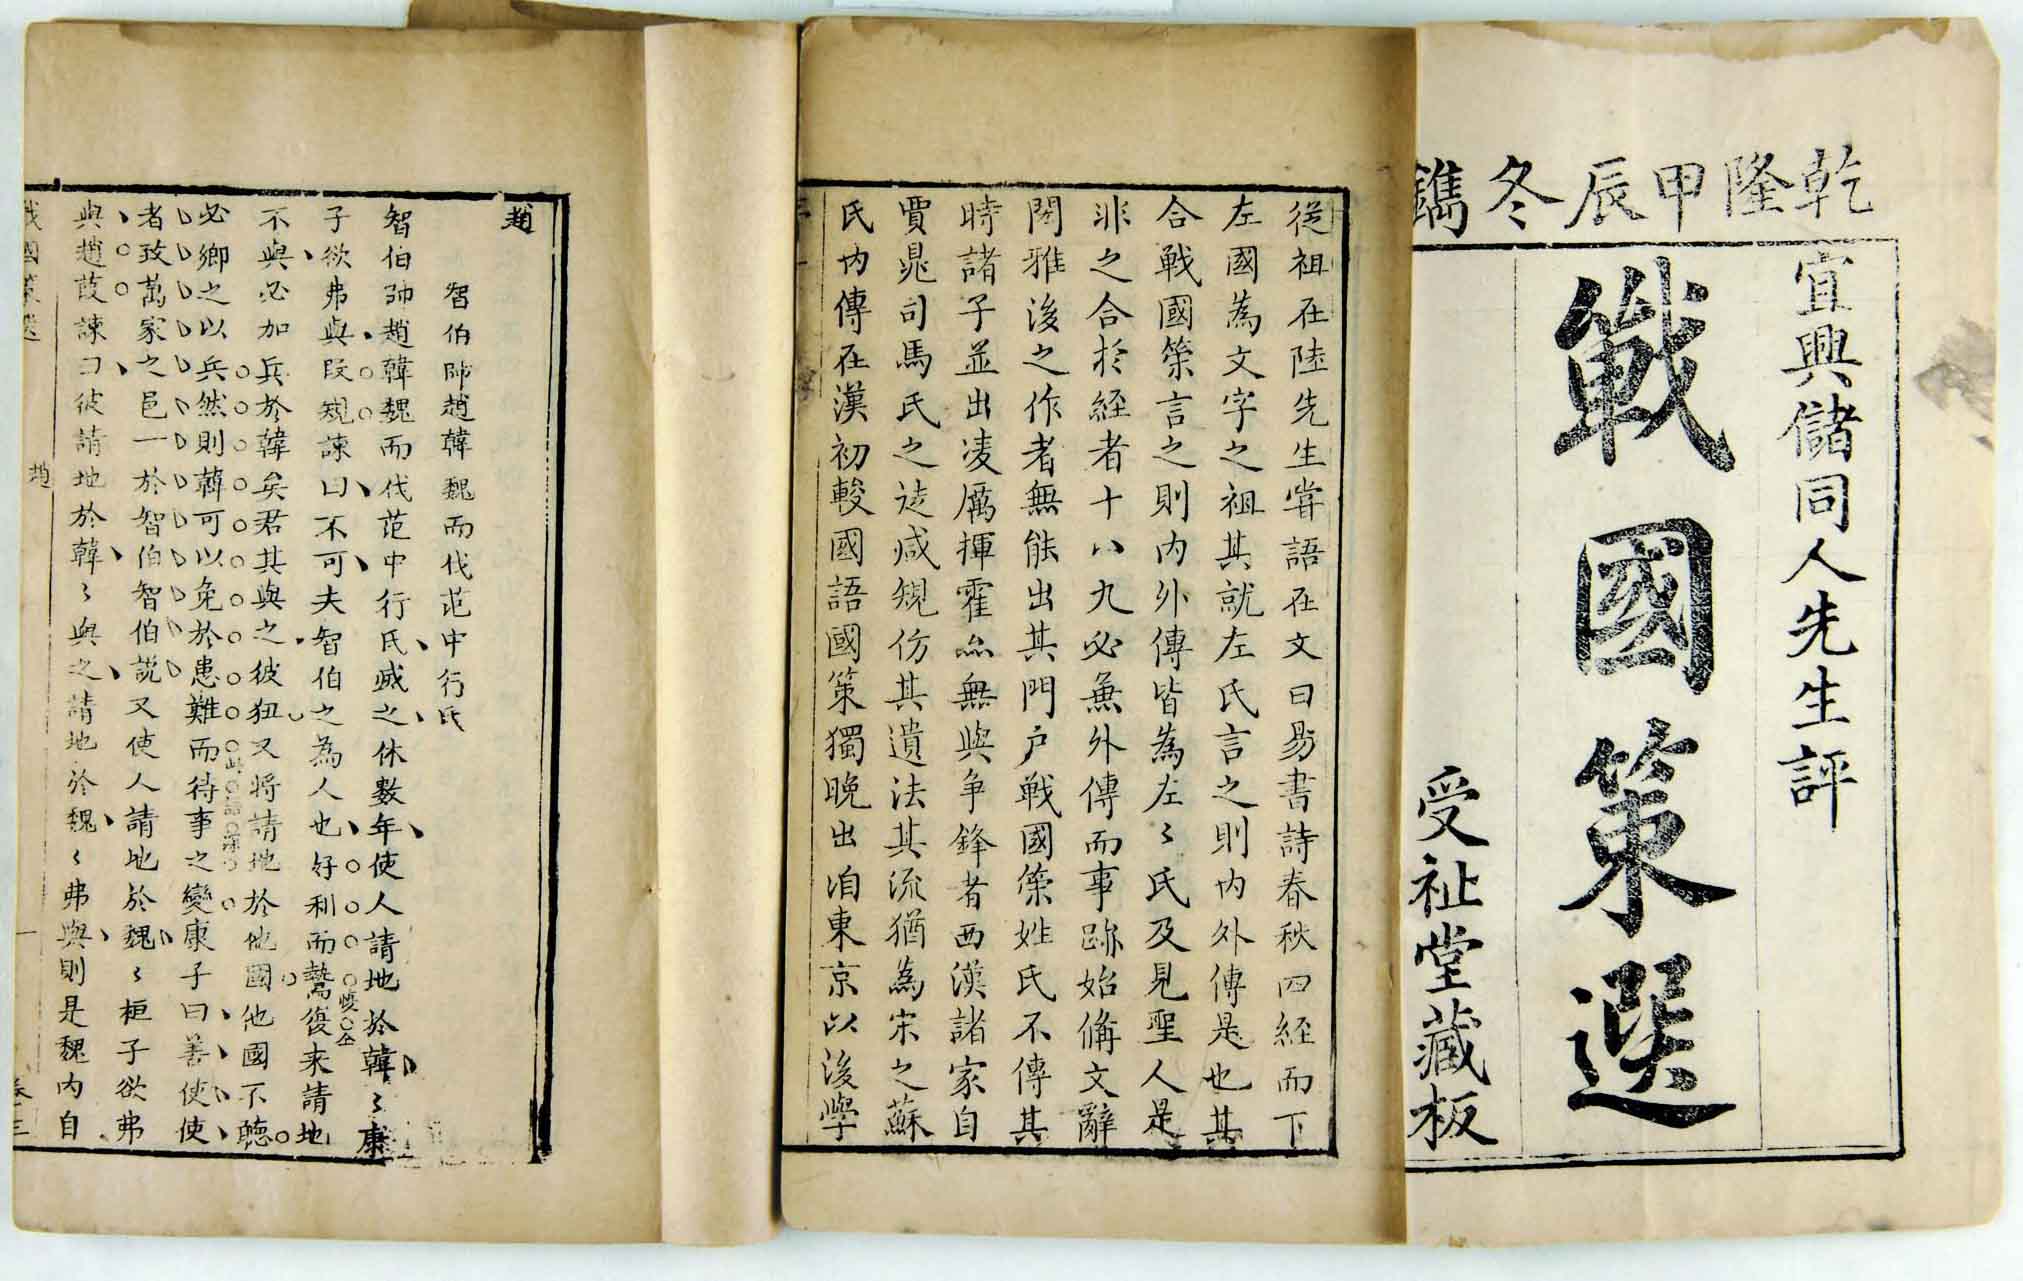 乾隆甲辰冬鐫
宜興儲同人先生評
戰國策選
受祉堂藏板
從祖在陸先生嘗語在文曰易書詩春秋四經而下
左國為文字之祖其就左氏言之則內外傳是也其
合戰國策言之則內外傳皆為左〻氏及見聖人是
非之合於經者十八九必無外傳而事跡始備文辭
閎雅後之作者無能出其門戶戰國策姓氏不傳其
時諸子並出凌厲揮霍無與爭鋒者西漢諸家自
賈鼂司馬氏之徒咸規仿其遺法其流猶為宋之蘇
氏內傳在漢初較國語國策獨晚出洎東京以後學
趙
智伯帥趙韓魏而伐范中行氏
智伯帥趙韓魏而伐范中行氏滅之休數年使人請地於韓〻康
子欲弗與段規諫曰不可夫智伯之為人也好利而鷙復來請地
不與必加兵於韓矣君其與之彼狃又將請地於他國他國不聽
必鄉之以兵然則韓可以免於患難而待事之變康子曰善使使
者致萬家之邑一於智伯智伯説又使人請地於魏〻桓子欲弗
與趙葭諫曰彼請地於韓〻與之請地於魏〻弗與則是魏內自
戰國策選
趙
一
卷三